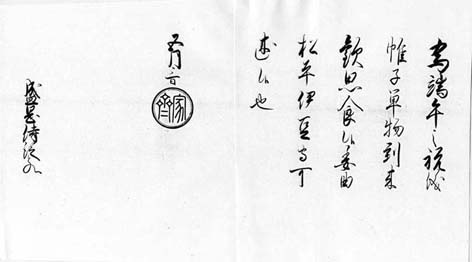 為端午之祝儀
帷子單物到来
歓思食候委曲
松平伊豆守可
述候也
五月
家齊
盛岡侍従とのへ